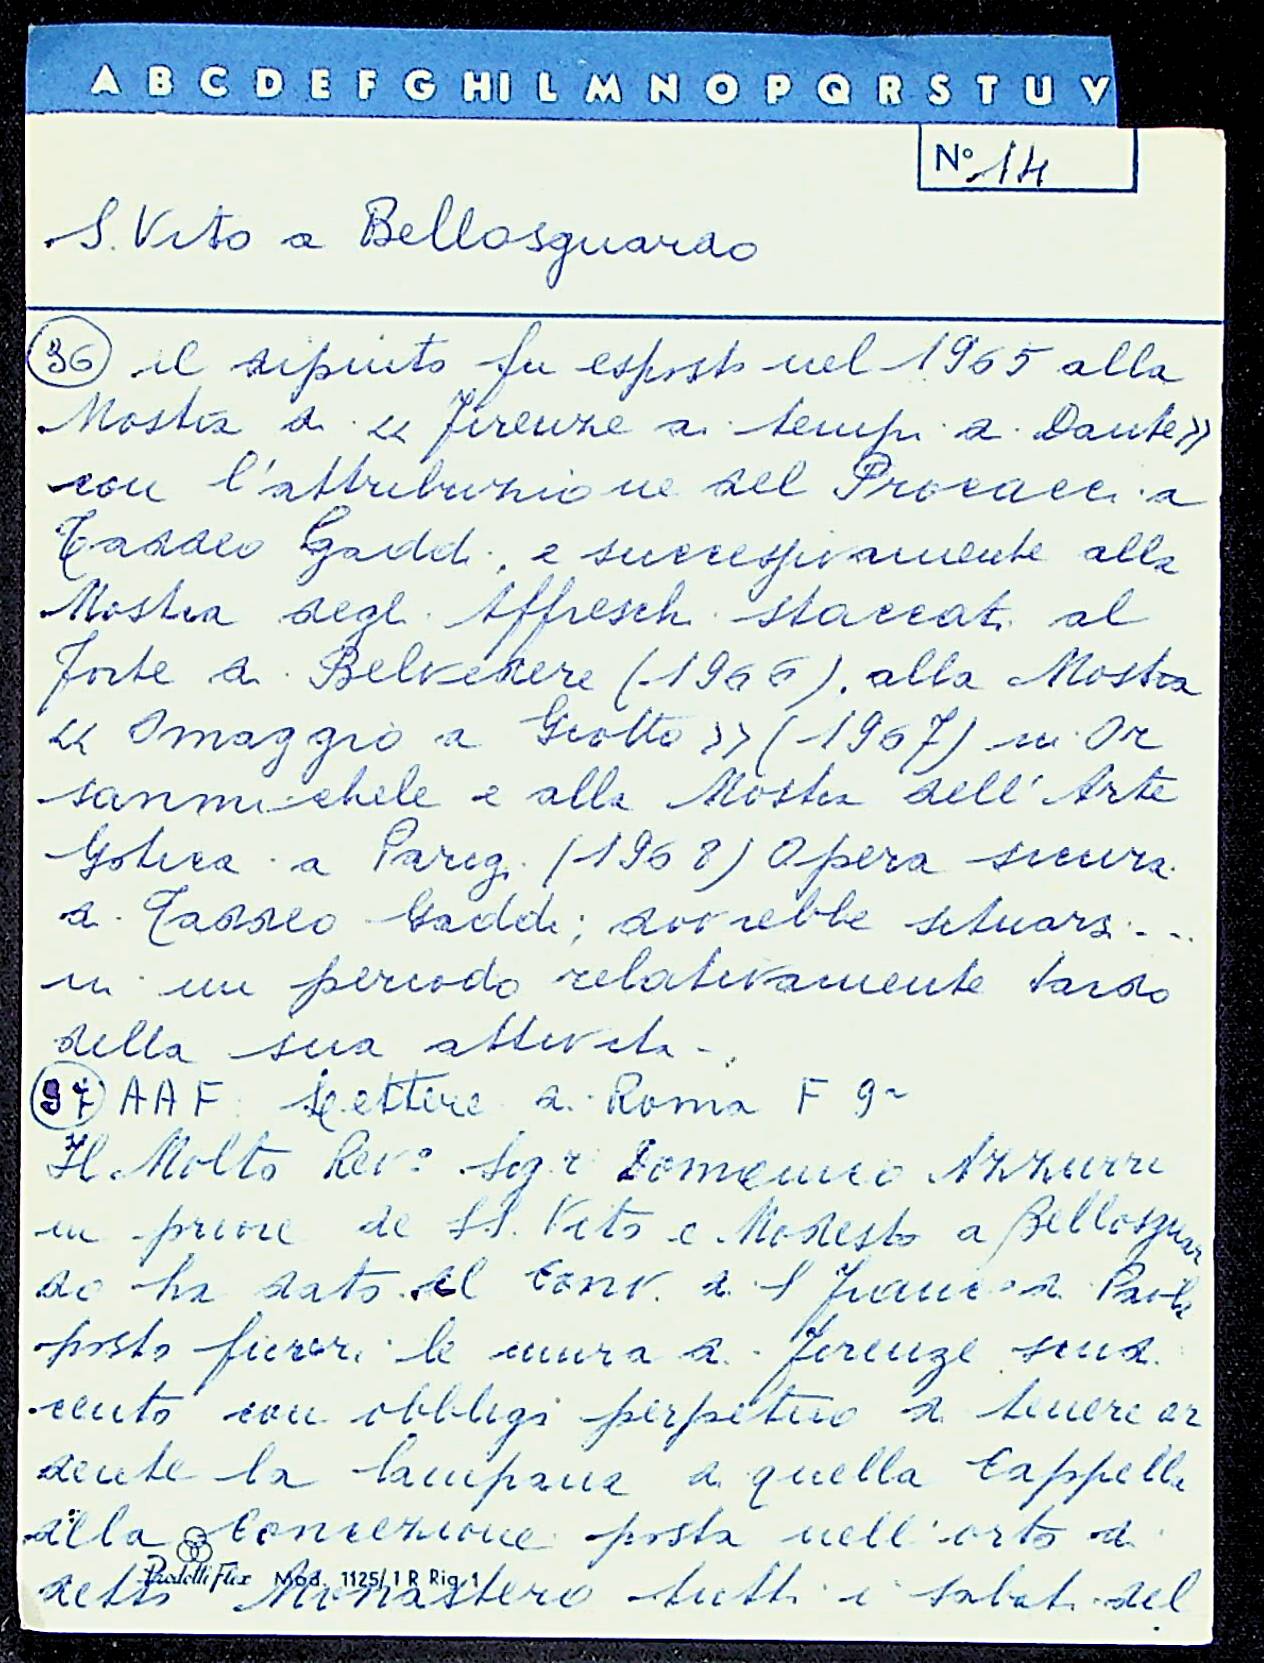 A B C D E F G H I L M N O P Q R S T U V
N° 14
S. Vito a Bellosguardo
36 il dipinto fu esposto nel 1965 alla
Mostra di « Firenze ai tempi di Dante»
con l'attribuzione del Procacci a
Taddeo Gaddi, e successivamente alla
Mostra degli Affreschi staccati al
Forte di Belvedere (1966), alla Mostra
« Omaggio a Giotto » (1967) in Or
sanmichele e alla Mostra dell'Arte
Gotica a Parigi (1968) Opera sicura
di Taddeo Gaddi; dovrebbe situarsi ...
in un periodo relativamente tardo
della sua attività -.
37 AAF Lettere di Roma F 92
Il Molto Rev° Sigr Domenico Azzurri
in priore de SS. Vito e Modesto a Bellosguar
do ha dato al Conv. di S Franc° di Paola
posto fuori le mura di Firenze scudi
cento con obbligo perpetuo di tenere ar
dente la lampana a quella Cappella
alla Concezione posta nell'orto di
detto Monastero tutti i sabati del
Buffetti Flex Mod. 1125/1 R Rig. 1